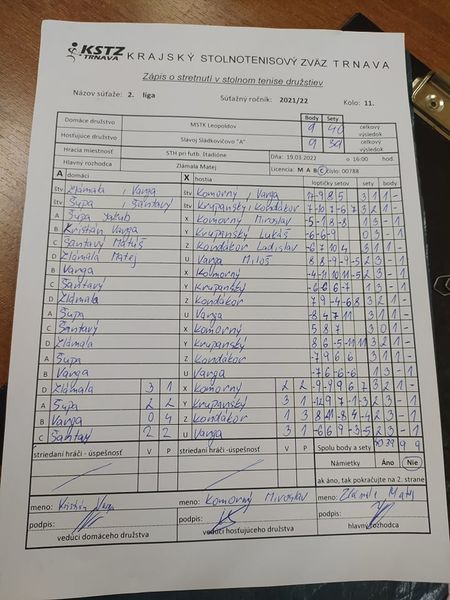 KSTZ TRNAVA KRAJSKÝ STOLNOTENISOVÝ ZVÄZ TRNAVA
Zápis o stretnutí v stolnom tenise družstiev
Názov súťaže: 2. liga Súťažný ročník: 2021/22 Kolo: 11.
Domáce družstvo MSTK Leopoldov Body Sety 9 40 celkový výsledok
Hosťujúce družstvo Slavoj Sládkovičovo "A" 9 39 celkový výsledok
Hracia miestnosť STH pri futb. štadióne Dňa: 19.03.2022 o 16:00 hod.
Hlavný rozhodca Zlámala Matej Licencia: M A B C číslo: 00788
A domáci X hostia loptičky setov sety body
štv Zlámala, Varga štv Komorný, Varga 7 -9 8 5 3 1 1 -
štv Šupa, Šantavý štv Krupanský, Kondákor
A Šupa Jakub X Komorný Miroslav
B Kristián Varga Y Krupanský Lukáš -6 -6 -9 0 3 - 1
C Šantavý Matúš Z Kondákor Ladislav -6 7 10 4 3 1 1 -
D Zlámala Matej U Varga Miloš 8 8 -9 -9 -5 2 3 - 1
B Varga X Komorný -4 -9 10 11 -5 2 3 - 1
C Šantavý Y Krupanský -6 6 6 -7 1 3 - 1
D Zlámala Z Kondákor
A Šupa U Varga -8 4 7 11 3 1 1 -
C Šantavý X Komorný 5 8 7 3 0 1 -
D Zlámala Y Krupanský 8 6 -5 -11
A Šupa Z Kondákor -7 9 6 6 3 1 1 -
B Varga U Varga -7 6 -7 6 -6 1 3 - 1
D Zlámala 3 1 X Komorný 2 2 -9 -9 9 6 7 3 2 1 -
A Šupa 2 2 Y Krupanský 3 1
B Varga 0 4 Z Kondákor 1 3 8 11 -8 -4 -4 2 3 - 1
C Šantavý 2 2 U Varga 3 1 -6 6 9 -3 -5 2 3 - 1
striedaní hráči - úspešnosť V P striedaní hráči - úspešnosť V P Spolu body a sety 40 39 9 9
Námietky Áno Nie
ak áno, tak pokračujte na 2. strane
meno: Kristián Varga meno: Komorný Miroslav meno: Zlámala Matej
podpis: podpis: podpis:
vedúci domáceho družstva vedúci hosťujúceho družstva hlavný rozhodca